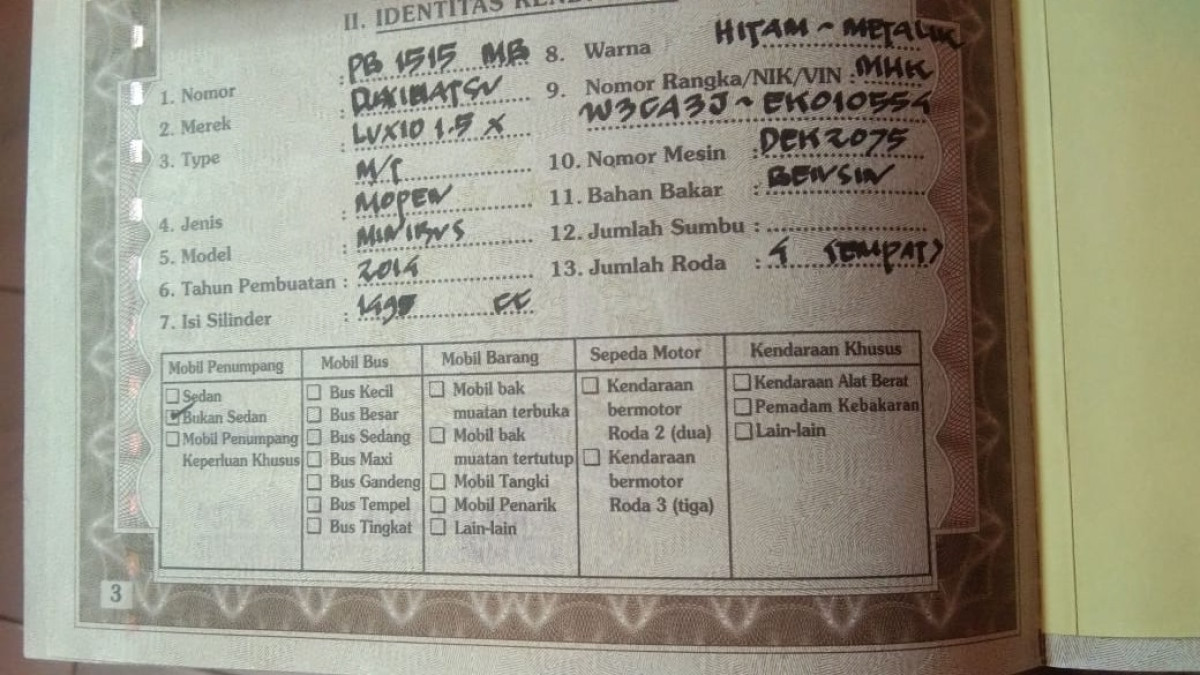 II. IDENTITAS
1. Nomor : PB 1515 MB
2. Merek : DAIHATSU
3. Type : LUXIO 1.5 X
M/T
4. Jenis : MOPEN
5. Model : MINIBUS
6. Tahun Pembuatan : 2014
7. Isi Silinder : 1495 CC
8. Warna HITAM ~ METALIK
9. Nomor Rangka/NIK/VIN : MHK
W3CA3J ~ EK010554
10. Nomor Mesin : DEK2075
11. Bahan Bakar : BENSIN
12. Jumlah Sumbu :
13. Jumlah Roda : 4 (EMPAT)
Mobil Penumpang
Sedan
Bukan Sedan
Mobil Penumpang
Keperluan Khusus
Mobil Bus
Bus Kecil
Bus Besar
Bus Sedang
Bus Maxi
Bus Gandeng
Bus Tempel
Bus Tingkat
Mobil Barang
Mobil bak
muatan terbuka
Mobil bak
muatan tertutup
Mobil Tangki
Mobil Penarik
Lain-lain
Sepeda Motor
Kendaraan
bermotor
Roda 2 (dua)
Kendaraan
bermotor
Roda 3 (tiga)
Kendaraan Khusus
Kendaraan Alat Berat
Pemadam Kebakaran
Lain-lain
3